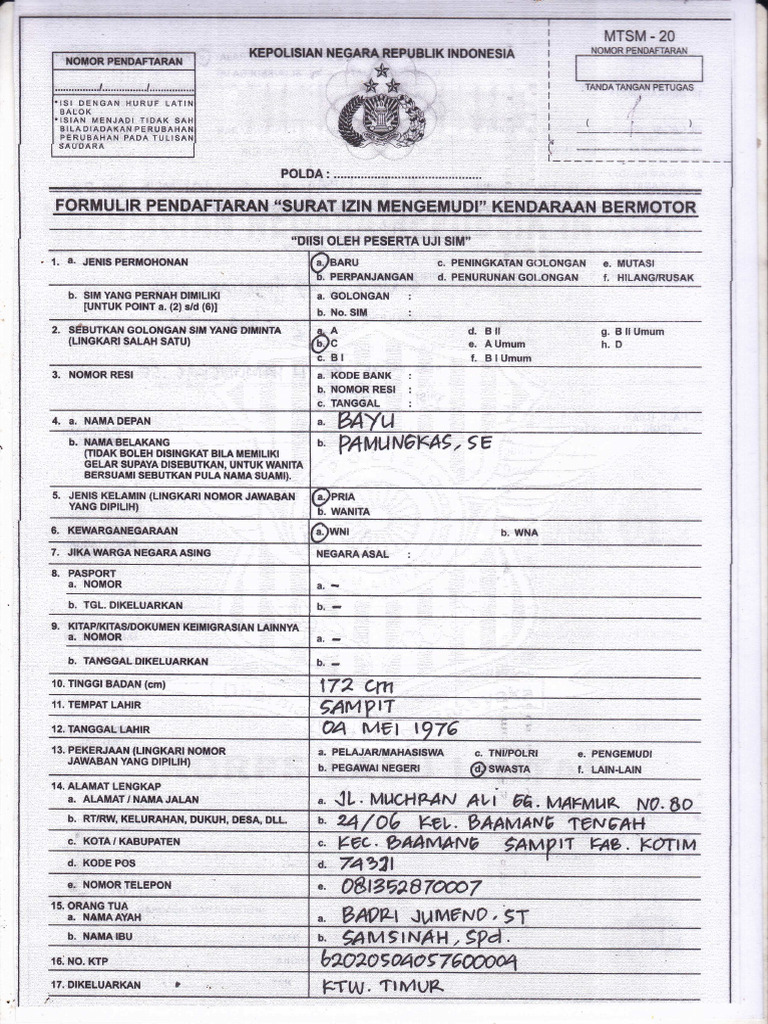 NOMOR PENDAFTARAN
......................./......................./.......................
*ISI DENGAN HURUF LATIN
BALOK
*ISIAN MENJADI TIDAK SAH
BILADIADAKAN PERUBAHAN
PERUBAHAN PADA TULISAN
SAUDARA
KEPOLISIAN NEGARA REPUBLIK INDONESIA
MTSM - 20
NOMOR PENDAFTARAN
TANDA TANGAN PETUGAS
( )
POLDA : ..........................................
FORMULIR PENDAFTARAN “SURAT IZIN MENGEMUDI” KENDARAAN BERMOTOR
“DIISI OLEH PESERTA UJI SIM”
1. a. JENIS PERMOHONAN a. BARU c. PENINGKATAN GOLONGAN e. MUTASI
b. PERPANJANGAN d. PENURUNAN GOLONGAN f. HILANG/RUSAK
b. SIM YANG PERNAH DIMILIKI a. GOLONGAN :
[UNTUK POINT a. (2) s/d (6)] b. No. SIM :
2. SEBUTKAN GOLONGAN SIM YANG DIMINTA a. A d. B II g. B II Umum
(LINGKARI SALAH SATU) b. C e. A Umum h. D
c. B I f. B I Umum
3. NOMOR RESI a. KODE BANK :
b. NOMOR RESI :
c. TANGGAL :
4. a. NAMA DEPAN a. BAYU
b. NAMA BELAKANG b. PAMUNGKAS, SE
(TIDAK BOLEH DISINGKAT BILA MEMILIKI
GELAR SUPAYA DISEBUTKAN, UNTUK WANITA
BERSUAMI SEBUTKAN PULA NAMA SUAMI).
5. JENIS KELAMIN (LINGKARI NOMOR JAWABAN a. PRIA
YANG DIPILIH) b. WANITA
6. KEWARGANEGARAAN a. WNI b. WNA
7. JIKA WARGA NEGARA ASING NEGARA ASAL :
8. PASPORT
a. NOMOR a. –
b. TGL. DIKELUARKAN b. –
9. KITAP/KITAS/DOKUMEN KEIMIGRASIAN LAINNYA
a. NOMOR a. –
b. TANGGAL DIKELUARKAN b. –
10. TINGGI BADAN (cm) 172 cm
11. TEMPAT LAHIR SAMPIT
12. TANGGAL LAHIR 04 MEI 1976
13. PEKERJAAN (LINGKARI NOMOR a. PELAJAR/MAHASISWA c. TNI/POLRI e. PENGEMUDI
JAWABAN YANG DIPILIH) b. PEGAWAI NEGERI d. SWASTA f. LAIN-LAIN
14. ALAMAT LENGKAP
a. ALAMAT / NAMA JALAN a. JL. MUCHRAN ALI GG. MAKMUR NO. 80
b. RT/RW, KELURAHAN, DUKUH, DESA, DLL. b. 24/06 KEL. BAAMANG TENGAH
c. KOTA / KABUPATEN c. KEC. BAAMANG SAMPIT KAB. KOTIM
d. KODE POS d. 74321
e. NOMOR TELEPON e. 081352870007
15. ORANG TUA
a. NAMA AYAH a. BADRI JUMENO, ST
b. NAMA IBU b. SAMSINAH, SPd.
16. NO. KTP 62020504057600004
17. DIKELUARKAN KTW. TIMUR